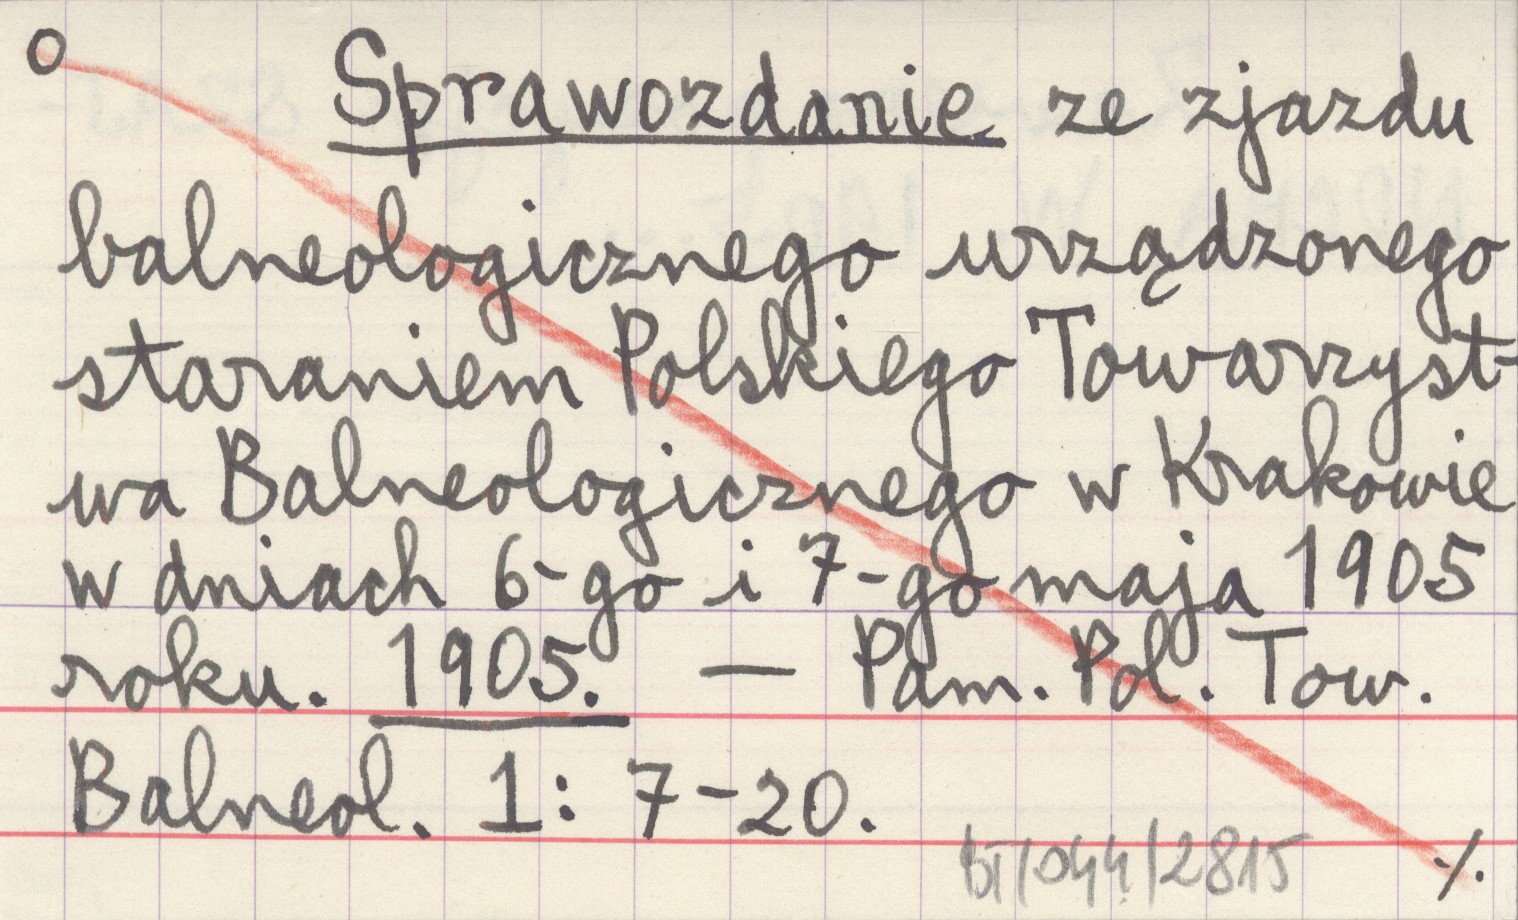 O Sprawozdanie ze zjazdu
balneologicznego urządzonego
staraniem Polskiego Towarzyst-
wa Balneologicznego w Krakowie
w dniach 6-go i 7-go maja 1905
roku. 1905. — Pam. Pol. Tow.
Balneol. 1: 7-20.
BT/044/2815 ·/·